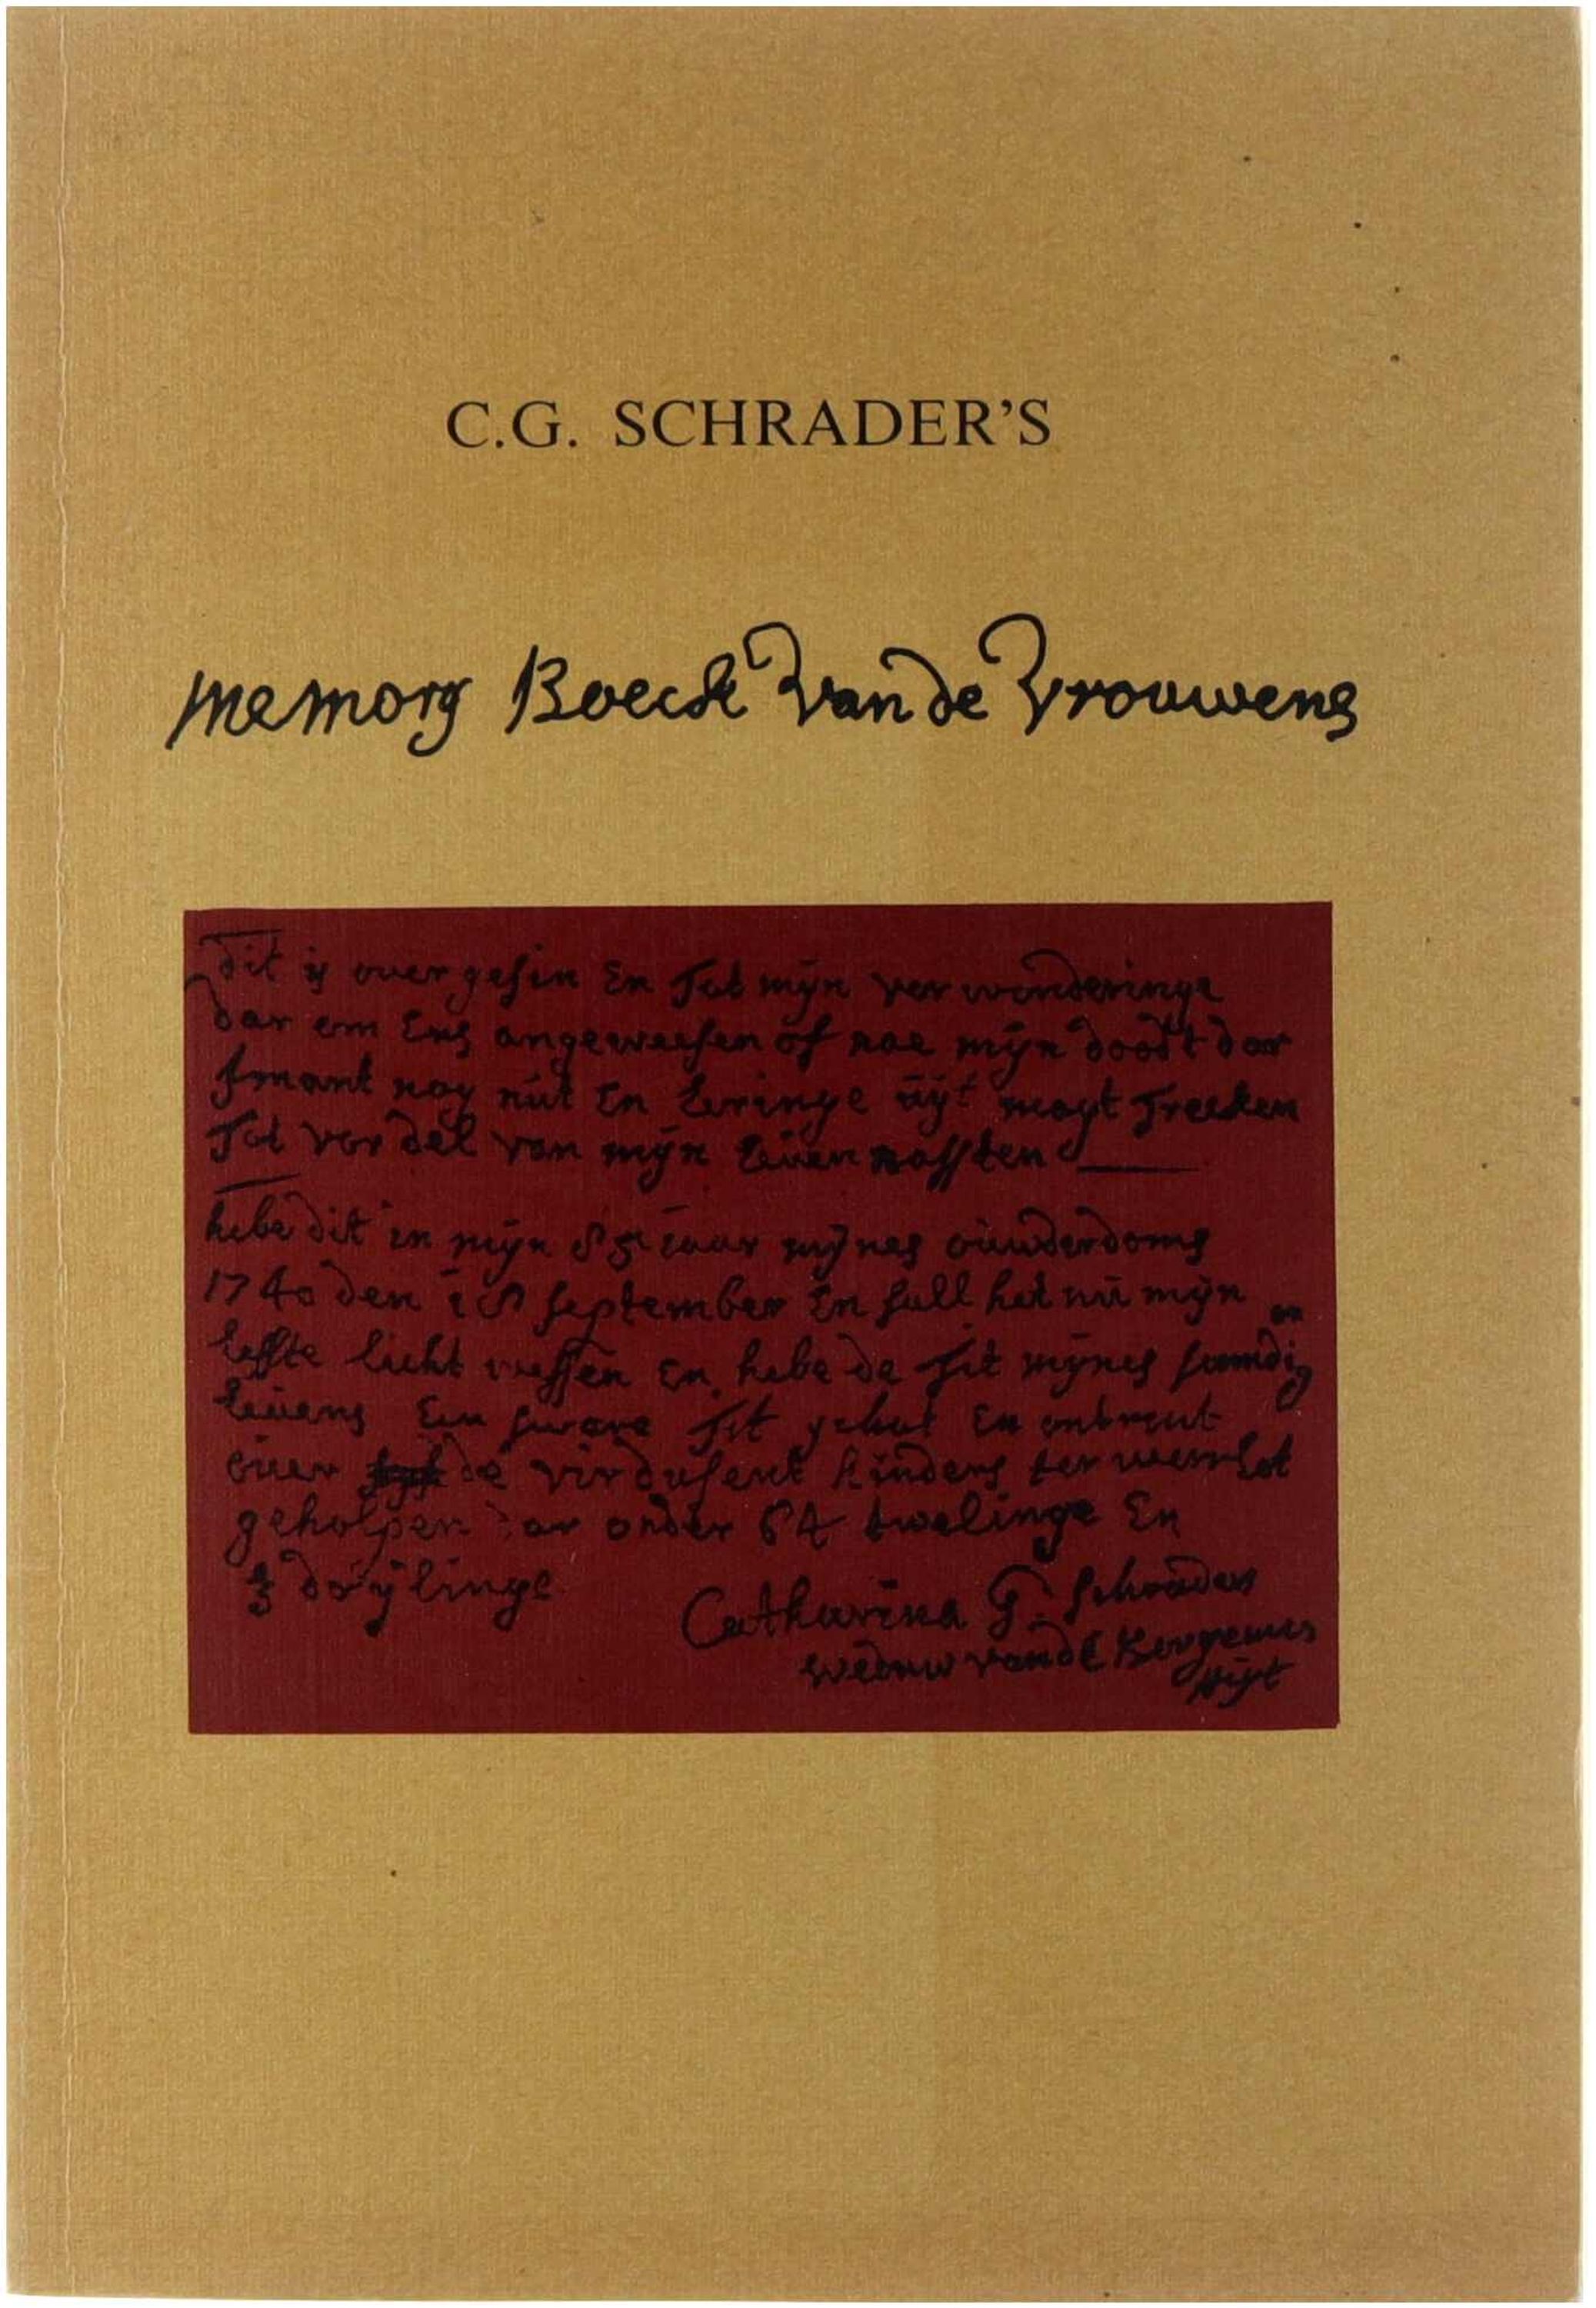 C.G. SCHRADER'S
memory Boeck van de vrouwens
dit is over gesin En Tot mijn verwonderinge
dar om Ens angeweesen of nae mijn doodt dor
Imant nog nut En Leringe uÿt mogt Trecken
Tot vordel van mijn Even nassten
hebe dit in mijn 85 iaar mijnes ouwderdoms
1740 den 18 september En sall het nu mijn
leste licht wessen En hebe de Tit mijnes
levens Een sware Tit gehat En omtrent
over de virdusent kinders ter werrlot
geholpen dar onder 64 twelinge En
3 drÿlinge
Catharina G. Schrader
weduw van de